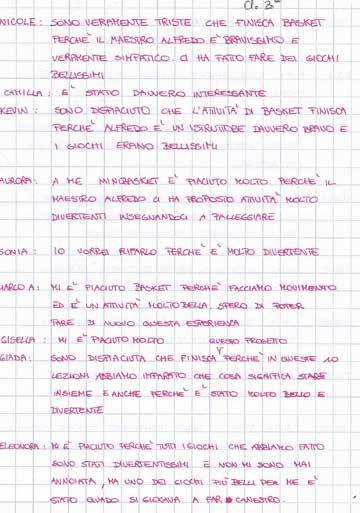 cl. 3ª
NICOLE: SONO VERAMENTE TRISTE CHE FINISCA BASKET
PERCHÈ IL MAESTRO ALFREDO È BRAVISSIMO E
VERAMENTE SIMPATICO. CI HA FATTO FARE DEI GIOCHI
BELLISSIMI
CAMILLA: E' STATO DAVVERO INTERESSANTE
KEVIN: SONO DISPIACIUTO CHE L'ATTIVITA' DI BASKET FINISCA
PERCHÈ ALFREDO E' UN ISTRUTTORE DAVVERO BRAVO E
I GIOCHI ERANO BELLISSIMI
AURORA: A ME MINIBASKET E' PIACIUTO MOLTO PERCHÈ IL
MAESTRO ALFREDO CI HA PROPOSTO ATTIVITA' MOLTO
DIVERTENTI INSEGNANDOCI A PALLEGGIARE
SONIA: IO VORREI RIFARLO PERCHÈ È MOLTO DIVERTENTE
MARCO A: MI E' PIACIUTO BASKET PERCHÈ FACCIAMO MOVIMENTO
ED E' UN ATTIVITA' MOLTO BELLA, SPERO DI POTER
FARE DI NUOVO QUESTA ESPERIENZA
GISELLA: MI E' PIACIUTO MOLTO QUESTO PROGETTO
GIADA: SONO DISPIACIUTA CHE FINISCA PERCHÈ IN QUESTE 10
LEZIONI ABBIAMO IMPARATO CHE COSA SIGNIFICA STARE
INSIEME E ANCHE PERCHÈ E' STATO MOLTO BELLO E
DIVERTENTE
ELEONORA: MI E' PIACIUTO PERCHÈ TUTTI I GIOCHI CHE ABBIAMO FATTO
SONO STATI DIVERTENTISSIMI E NON MI SONO MAI
ANNOIATA, MA UNO DEI GIOCHI PIÙ BELLI PER ME E'
STATO QUADO SI GIOCAVA A FAR CANESTRO.